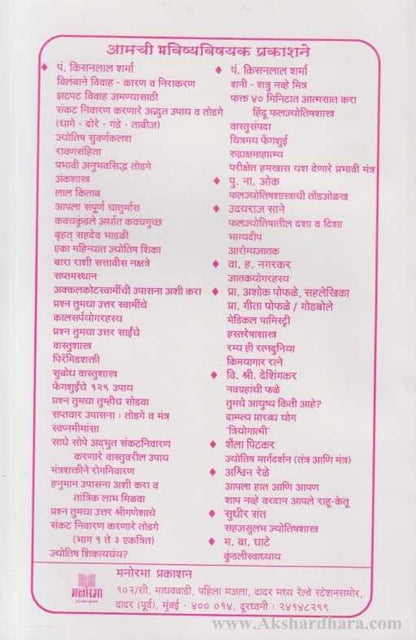 आमची भविष्यविषयक प्रकाशने
♦ पं. किसनलाल शर्मा
विलंबाने विवाह - कारण व निराकरण
झटपट विवाह जमण्यासाठी
संकट निवारण करणारे अद्भुत उपाय व तोडगे
(धागे - दोरे - गंडे - ताबीज)
ज्योतिष सुवर्णकलश
रावणसंहिता
प्रभावी अनुभवसिद्ध तोडगे
अंकशास्त्र
लाल किताब
आपला संपूर्ण चातुर्मास
कवचकुंडले अर्थात कवचगुच्छ
बृहत् सहदेव भाडळी
एका महिन्यात ज्योतिष शिका
बारा राशी सत्तावीस नक्षत्रे
सप्तमस्थान
अक्कलकोटस्वामींची उपासना अशी करा
प्रश्न तुमचा उत्तर स्वामींचे
कालसर्पयोगरहस्य
प्रश्न तुमचा उत्तर साईंचे
वास्तुशास्त्र
पिरॅमिडशक्ती
सुबोध वास्तुशास्त्र
फेंगशुईचे १२९ उपाय
प्रश्न तुमचा तुम्हीच सोडवा
सप्तवार उपासना : तोडगे व मंत्र
स्वप्नमीमांसा
साधे सोपे अद्भुत संकटनिवारण
करणारे वास्तुवरील उपाय
मंत्रशक्तीने रोगनिवारण
हनुमान उपासना अशी करा व
तांत्रिक लाभ मिळवा
प्रश्न तुमचा उत्तर श्रीगणेशाचे
संकट निवारण करणारे तोडगे
(भाग १ ते ३ एकत्रित)
ज्योतिष शिकायचंय?
♦ पं. किसनलाल शर्मा
शनी - शत्रु नव्हे मित्र
फक्त ४० मिनिटात आत्मसात करा
हिंदू फलज्योतिषशास्त्र
वास्तुसंपदा
चित्रमय फेंगशुई
रुद्राक्षमाहात्म्य
परीक्षेत हमखास यश देणारे प्रभावी मंत्र
♦ पु. ना. ओक
फलज्योतिषशास्त्राची तोंडओळख
♦ उदयराज साने
फलज्योतिषातील दशा व दिशा
भाग्यदीप
आरोग्यजातक
♦ वा. ह. नगरकर
जातकयोगरहस्य
♦ प्रा. अशोक पोफळे, सहलेखिका
प्रा. गीता पोफळे / गोडबोले
मेडिकल पामिस्ट्री
हस्तरेषाशास्त्र
रम्य ही रत्नदुनिया
किमयागार रत्ने
♦ वि. श्री. देशिंगकर
नवग्रहांची फळे
तुमचे आयुष्य किती आहे?
दाम्पत्य प्रारब्ध योग
'त्रियोगाली'
♦ शैला पिटकर
ज्योतिष मार्गदर्शन (तंत्र आणि मंत्र)
♦ अश्विन रेळे
आपला हात आणि आपण
शाप नव्हे वरदान आपले राहू-केतू
♦ सुधीर संत
सहजसुलभ ज्योतिषशास्त्र
♦ म. बा. घाटे
कुंडलीस्वाध्याय
मनोरमा
मनोरमा प्रकाशन
१०२/सी, माधववाडी, पहिला मजला, दादर मध्य रेल्वे स्टेशनसमोर,
दादर (पूर्व), मुंबई - ४०० ०१४. दूरध्वनी : २४१४८२९९
www.Akshardhara.com